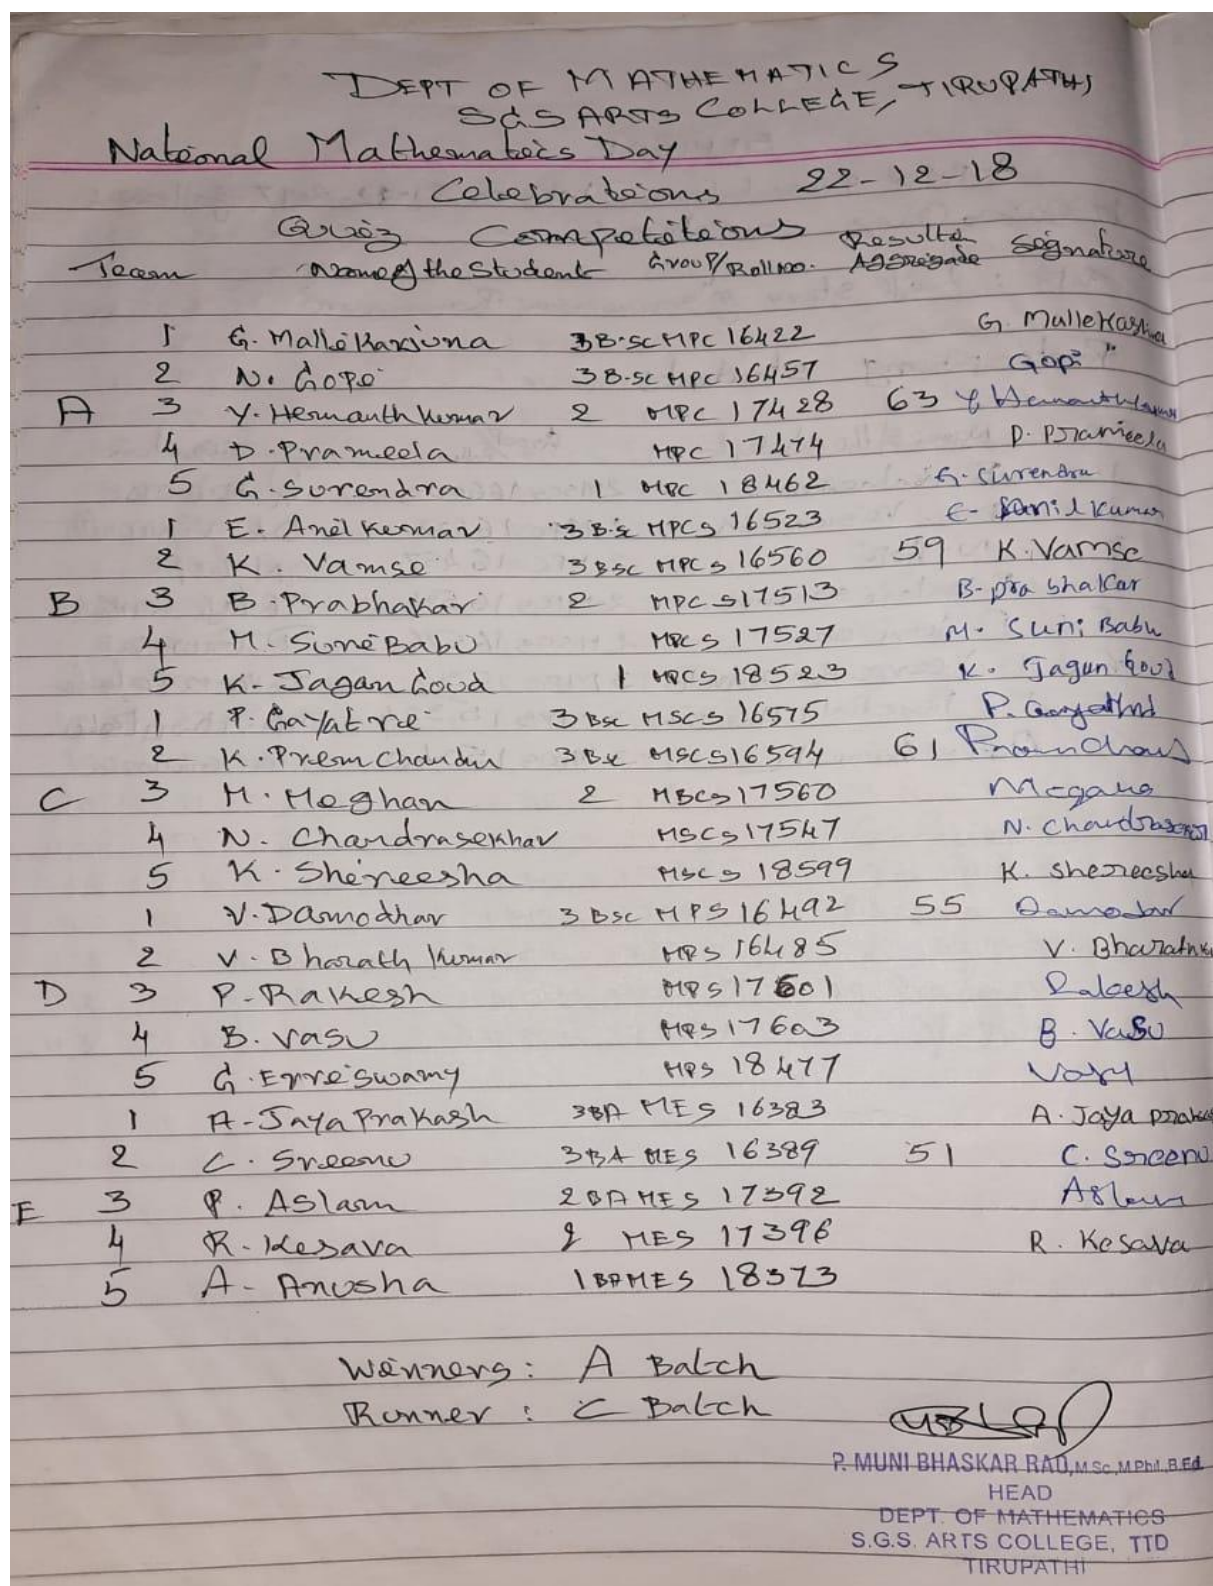 DEPT OF MATHEMATICS
SGS ARTS COLLEGE, TIRUPATHI
National Mathematics Day
Celebrations 22-12-18
Quiz Competitions
Team Name of the Student Group/Roll no. Results Aggregade Signature
1 G. Mallikarjuna 3 B.sc MPC 16422 G. Mallekarjuna
2 N. Gopi 3 B.sc MPC 16457 Gopi
A 3 Y. Hemanth Kumar 2 MPC 17428 63
4 D. Prameela MPC 17474 D. Prameela
5 G. Surendra 1 MPC 18462 G. Surendra
1 E. Anil Kumar 3 B.sc MPCs 16523 E. Kumar
2 K. Vamsi 3 Bsc MPCs 16560 59 K. Vamse
B 3 B. Prabhakar 2 MPCs 17513 B. prabhakar
4 M. Suni Babu MPCs 17527 M. Suni Babu
5 K. Jagan Goud 1 MPCs 18523 K. Jagan Goud
1 P. Gayatri 3 Bsc MSCs 16575 P. Gayathri
2 K. Prem Chandu 3 Bsc MSCs 16594 61
C 3 M. Meghan 2 MSCs 17560
4 N. Chandrasekhar MSCs 17547 N. Chandrasekhar
5 K. Shireesha MSCs 18599 K. Shereesha
1 V. Damodhar 3 Bsc MPS 16492 55 Damodar
2 V. Bharath Kumar MPS 16485 V. Bharath
D 3 P. Rakesh MPS 17601 Rakesh
4 B. Vasu MPS 17603 B. Vasu
5 G. Erriswamy MPS 18477
1 A. Jaya Prakash 3BA MES 16383 A. Jaya
2 C. Sreenu 3BA MES 16389 51 C. Sreenu
E 3 P. Aslam 2 BA MES 17392 Aslam
4 R. Kesava 2 MES 17396 R. Kesava
5 A. Anusha 1 BA MES 18373
Winners: A Batch
Runner : C Batch
P. MUNI BHASKAR RAO, M.Sc., M.Phil, B.Ed
HEAD
DEPT. OF MATHEMATICS
S.G.S. ARTS COLLEGE, TTD
TIRUPATHI